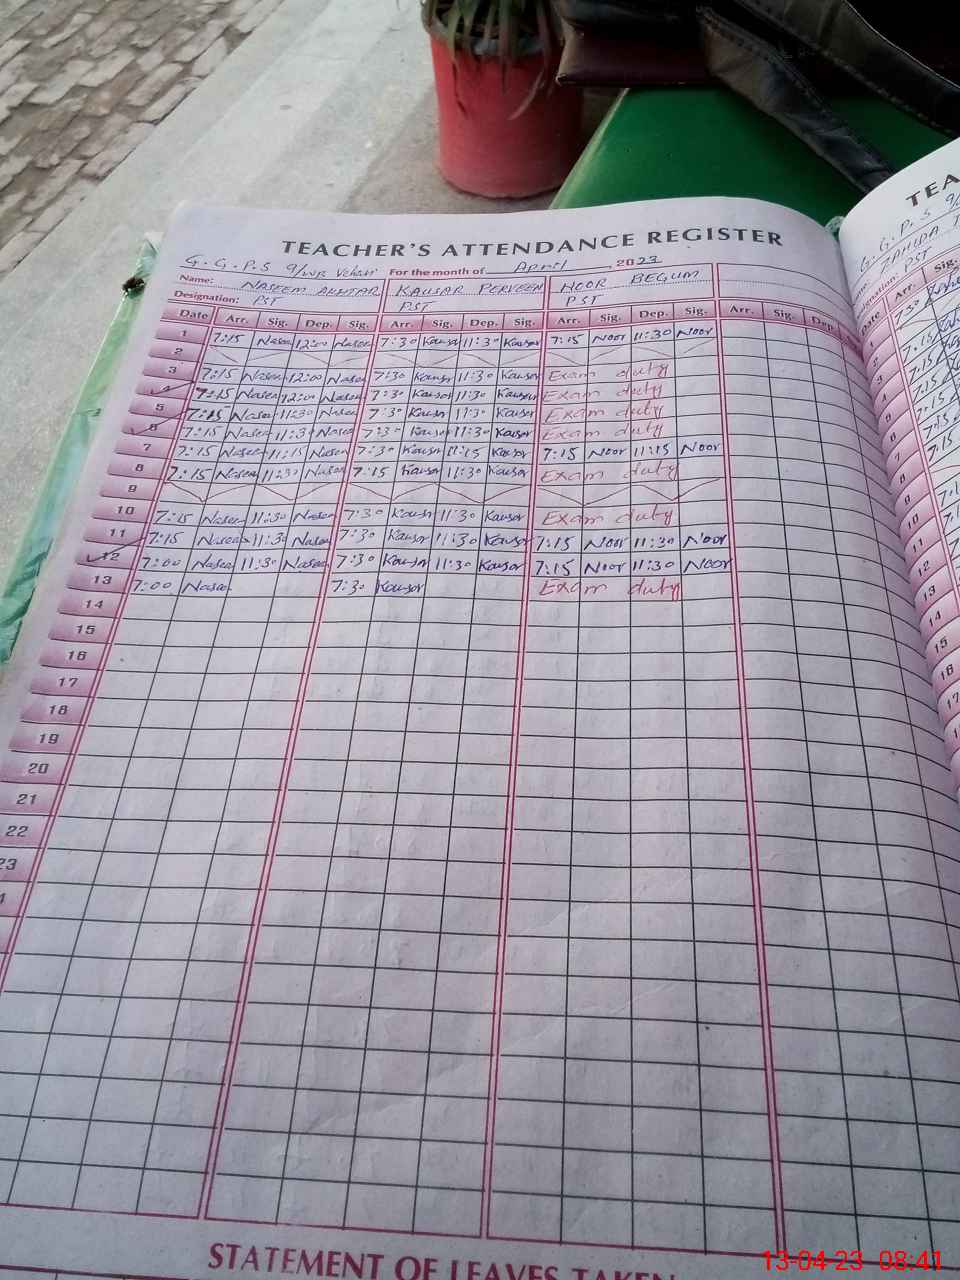 TEACHER'S ATTENDANCE REGISTER
G. G. P. S 9/WB Vehari For the month of April 2023
Name: NASEEM AKHTAR KAUSAR PERVEEN NOOR BEGUM
Designation: PST PST PST
Date Arr. Sig. Dep. Sig. Arr. Sig. Dep. Sig. Arr. Sig. Dep. Sig. Arr. Sig. Dep.
1 7:15 Nasee 12:00 Nasee 7:30 Kausor 11:30 Kausor 7:15 Noor 11:30 Noor
2
3 7:15 Nasee 12:00 Nasee 7:30 Kausor 11:30 Kausor Exam duty
4 7:15 Nasee 12:00 Nasee 7:30 Kausor 11:30 Kausor Exam duty
5 7:15 Nasee 11:30 Nasee 7:30 Kausor 11:30 Kausor Exam duty
6 7:15 Nasee 11:30 Nasee 7:30 Kausor 11:30 Kausor Exam duty
7 7:15 Nasee 11:15 Nasee 7:30 Kausor 11:15 Kausor 7:15 Noor 11:15 Noor
8 7:15 Nasee 11:30 Nasee 7:15 Kausor 11:30 Kausor Exam duty
9
10 7:15 Nasee 11:30 Nasee 7:30 Kausor 11:30 Kausor Exam duty
11 7:15 Nasee 11:30 Nasee 7:30 Kausor 11:30 Kausor 7:15 Noor 11:30 Noor
12 7:00 Nasee 11:30 Nasee 7:30 Kausor 11:30 Kausor 7:15 Noor 11:30 Noor
13 7:00 Nasee 7:30 Kausor Exam duty
14
15
16
17
18
19
20
21
22
23
STATEMENT OF LEAVES TAKEN
TEA
G. P. S 9/
ZAHIDA
Designation: PST
Date Arr. Sig.
1 7:30
2
3 7:15
4 7:15
5 7:15
6 7:15
7 7:15
8
9
10
11
12
13
14
15
16
17
13-04-23 08:41